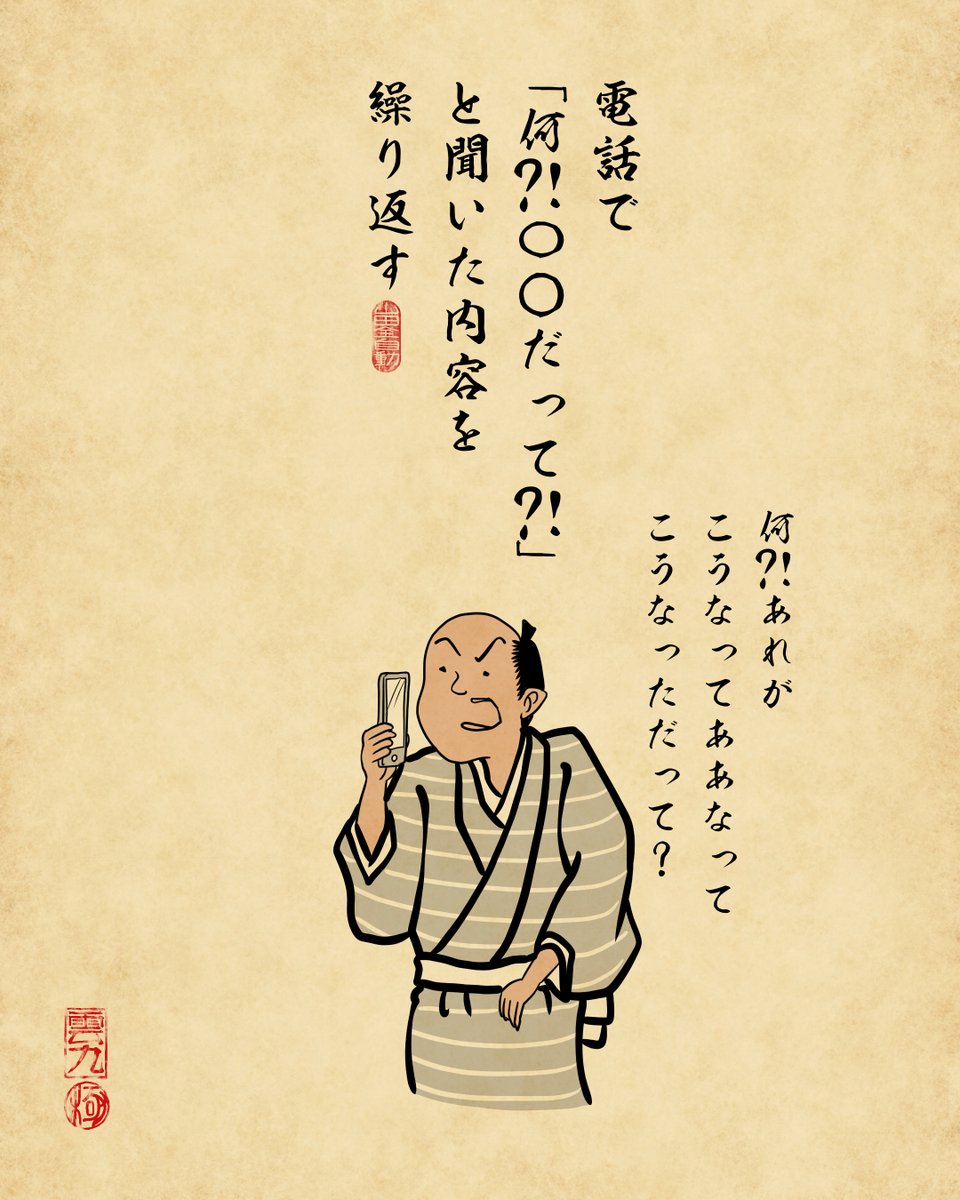 電話で
「何?!〇〇だって?!」
と聞いた内容を
繰り返す
何?!あれが
こうなってああなって
こうなっただって?
雲九
極